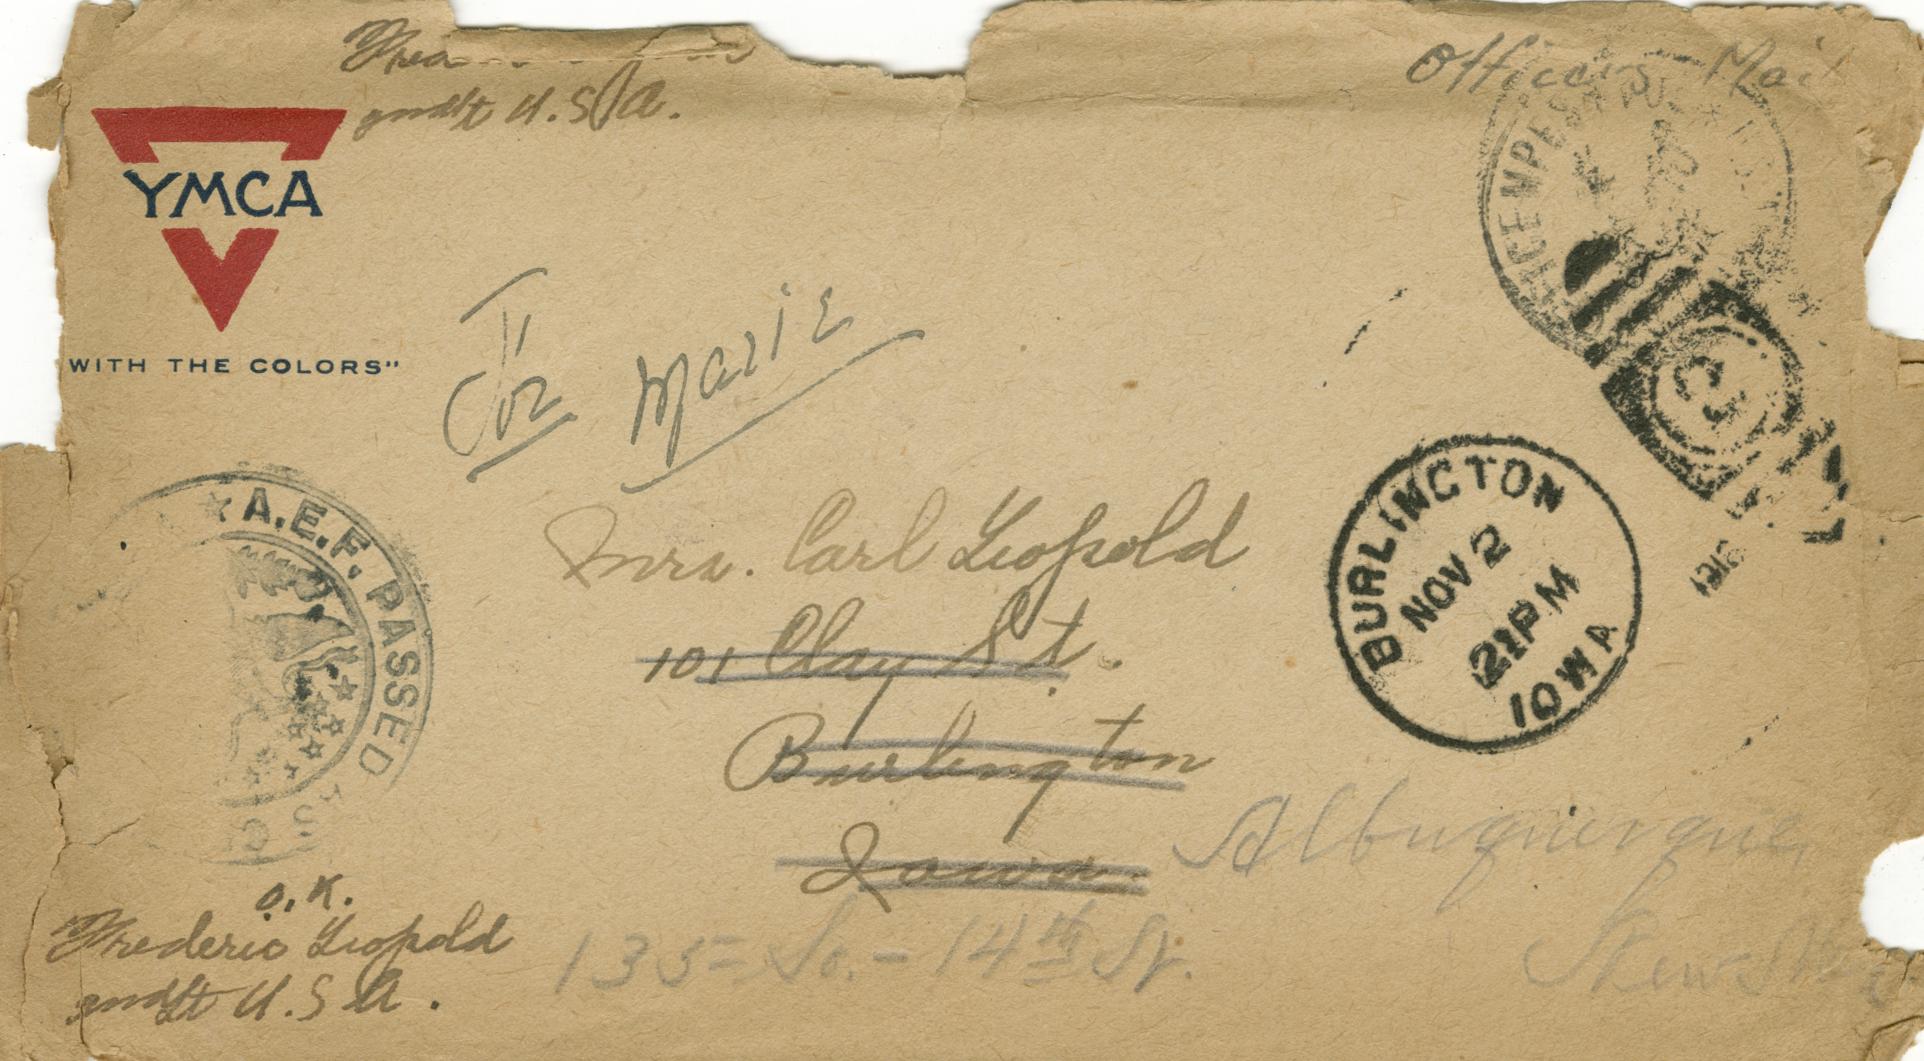 2nd Lt U.S.A.
Officers Mail
YMCA
WITH THE COLORS"
For Marie
A.E.F. PASSED
BURLINGTON
NOV 2
PM
IOWA
Mrs. Carl Leopold
101 Clay St.
Burlington
Iowa.
Albuquerque,
135 - So. - 14th St.
New
O.K.
Frederic Leopold
2nd Lt U.S.A.